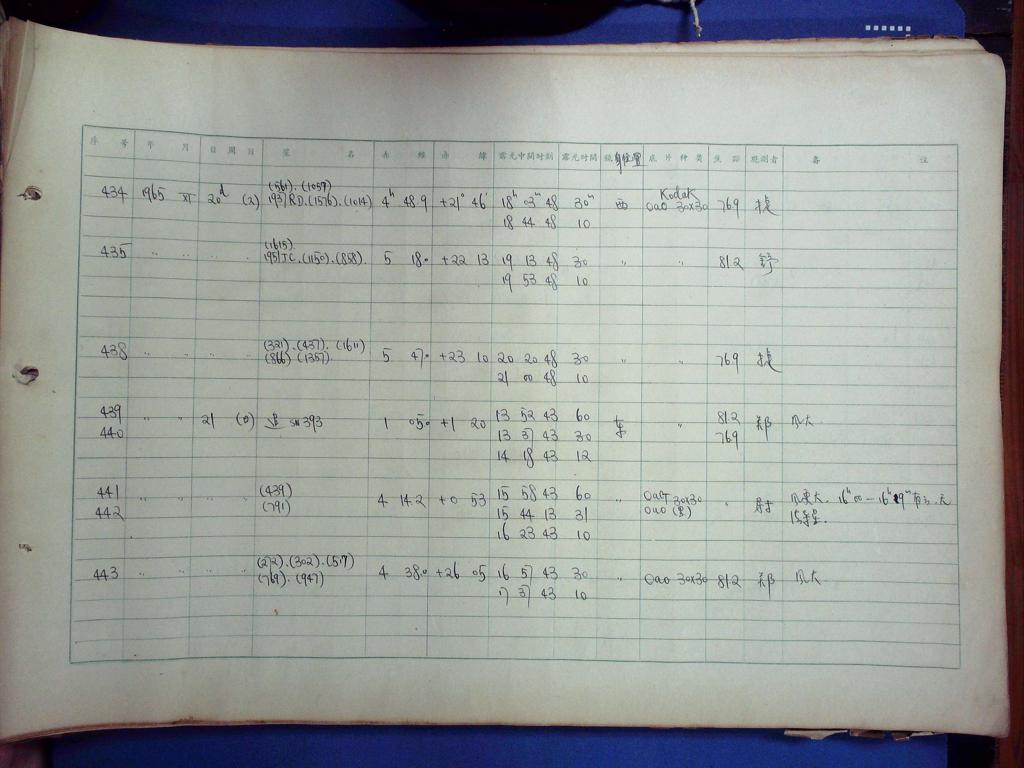 序 号 年 月 日 周 日 星 名 赤 经 赤 纬 露光中间时刻 露光时间 镜身位置 底片种类 焦距 观测者 备 注
(561).(1057) Kodak
434 1965 XI 20d (2) 1937RD.(1576).(1014) 4h 48.9 +21° 46' 18h 03m 48 30m 西 0a0 30x30 769 捷
18 44 48 10
(1615).
435 〃 〃 〃 〃 1951JC.(1150).(858). 5 18.0 +22 13 19 13 48 30 〃 〃 81.2 舒
19 53 48 10
(321).(437).(1611)
438 〃 〃 〃 〃 (866).(1357). 5 47.0 +23 10 20 20 48 30 〃 〃 769 捷
21 00 48 10
439 13 52 43 60 81.2
〃 〃 21 (0) SW 393 1 05.0 +1 20 东 〃 郑 风大
440 13 37 43 30 769
14 18 43 12
441 〃 〃 〃 (439) 15 58 43 60 〃 0aG 30x30
442 (791) 4 14.2 +0 53 15 44 13 31 0a0
16 23 43 10
(272).(302).(517)
443 〃 〃 〃 (769).(947) 4 38.0 +26 05 16 57 43 30 〃 0a0 30x30 81.2 郑 风大
17 37 43 10